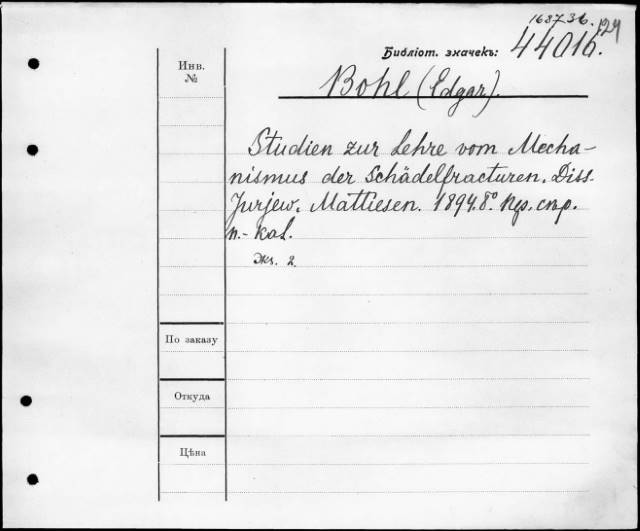 168736.
129
Библіот. значекъ: 44016.
Инв.
№
Bohl (Edgar).
Studien zur Lehre vom Mecha-
nismus der Schädelfracturen. Diss.
Jurjew. Mattiesen. 1894. 8°
n.- kal.
Экз. 2.
По заказу
Откуда
Цѣна